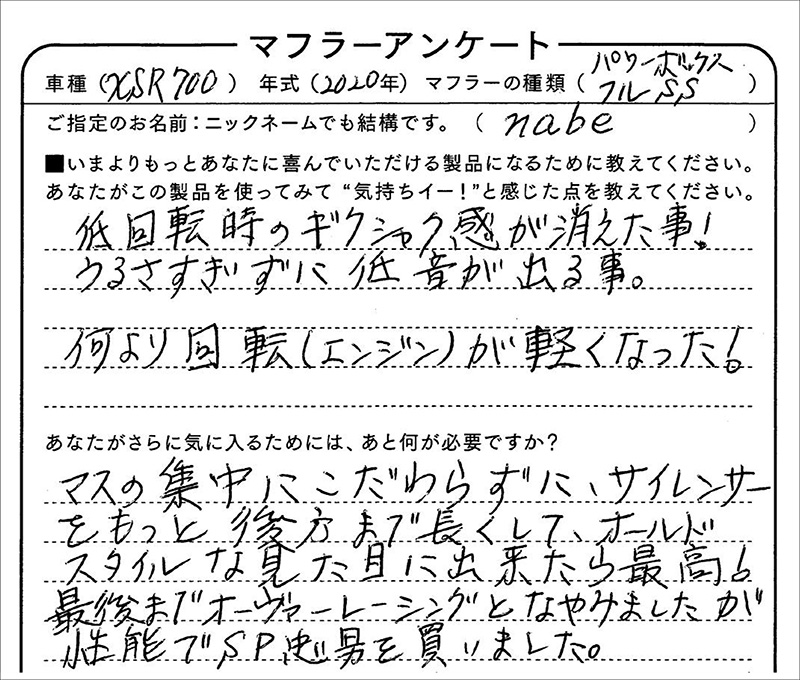 マフラーアンケート
車種（XSR700） 年式（2020年） マフラーの種類（パワーボックス フルSS）
ご指定のお名前：ニックネームでも結構です。（nabe）
■いまよりもっとあなたに喜んでいただける製品になるために教えてください。
あなたがこの製品を使ってみて“気持ちイー！”と感じた点を教えてください。
低回転時のギクシャク感が消えた事！
うるさすぎずに低音が出る事。
何より回転（エンジン）が軽くなった！
あなたがさらに気に入るためには、あと何が必要ですか？
マスの集中にこだわらずに、サイレンサー
をもっと後方まで長くして、オールド
スタイルな見た目に出来たら最高！
最後までオーヴァーレーシングとなやみましたが
性能でSP忠男を買いました。